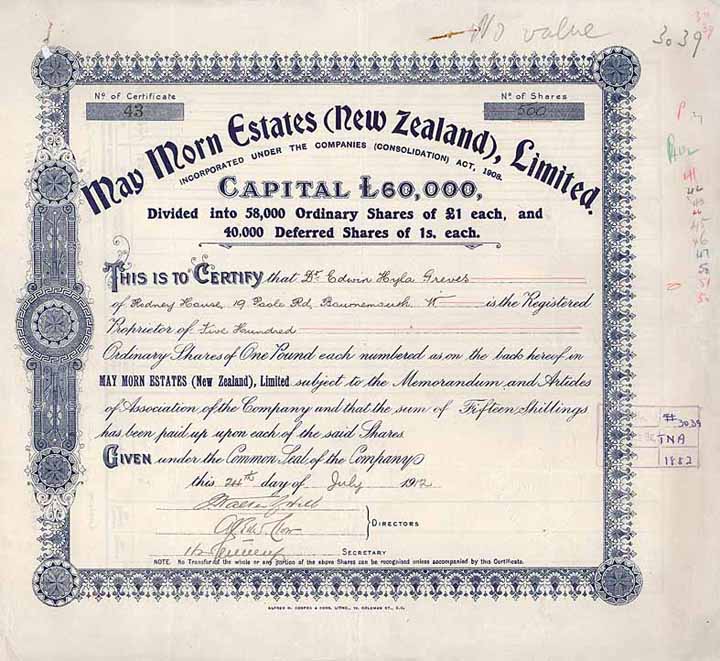 No value
3039
No of Certificate
43
No of Shares
500
May Morn Estates (New Zealand), Limited.
INCORPORATED UNDER THE COMPANIES (CONSOLIDATION) ACT, 1908.
CAPITAL £60,000,
Divided into 58,000 Ordinary Shares of £1 each, and
40,000 Deferred Shares of 1s. each.
THIS IS TO CERTIFY that Dr. Edwin Hyla Greves
of Rodney House, 19 Poole Rd, Bournemouth W is the Registered
Proprietor of Five Hundred
Ordinary Shares of One Pound each numbered as on the back hereof in
MAY MORN ESTATES (New Zealand), Limited subject to the Memorandum and Articles
of Association of the Company and that the sum of Fifteen Shillings
has been paid up upon each of the said Shares
GIVEN under the Common Seal of the Company
this 24th day of July 1912
DIRECTORS
SECRETARY
NOTE. No Transfer of the whole or any portion of the above Shares can be recognised unless accompanied by this Certificate.
ALFRED H. COOPER & SONS, LITHO., 19, COLEMAN ST., E.C.
# 3039
TNA
1882